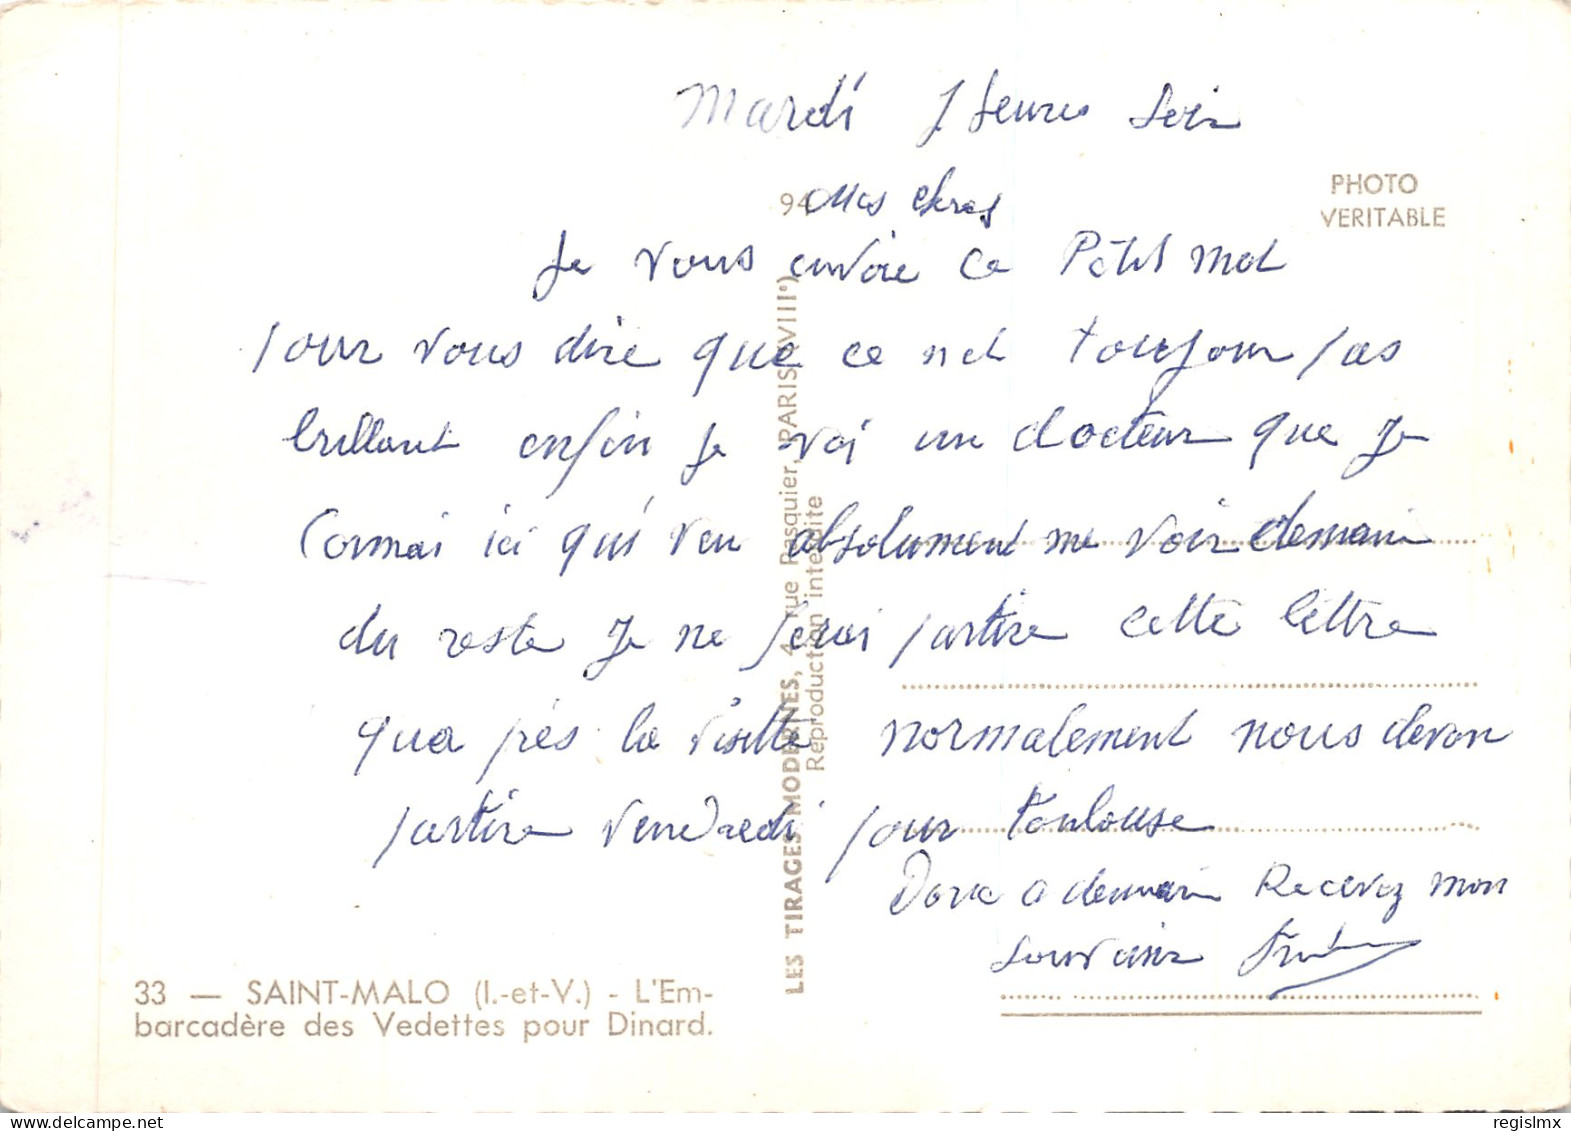 Mardi 7 heures soir
PHOTO
VERITABLE
94
Mes chers
Je vous envoie ce Petit mot
pour vous dire que ce net toujour pas
brillant enfin je voi un docteur que je
Connai ici qui veu absolument me voir demain
du reste je ne ferai partire cette lettre
qua prés la visitte normalement nous devon
partire Vendredi pour Toulouse
Donc a demain Recevez mon
souvenir
LES TIRAGES MODERNES, 4, rue Pasquier, PARIS (VIIIe)
Reproduction interdite
33 — SAINT-MALO (I.-et-V.) - L'Em-
barcadère des Vedettes pour Dinard.
regislmx